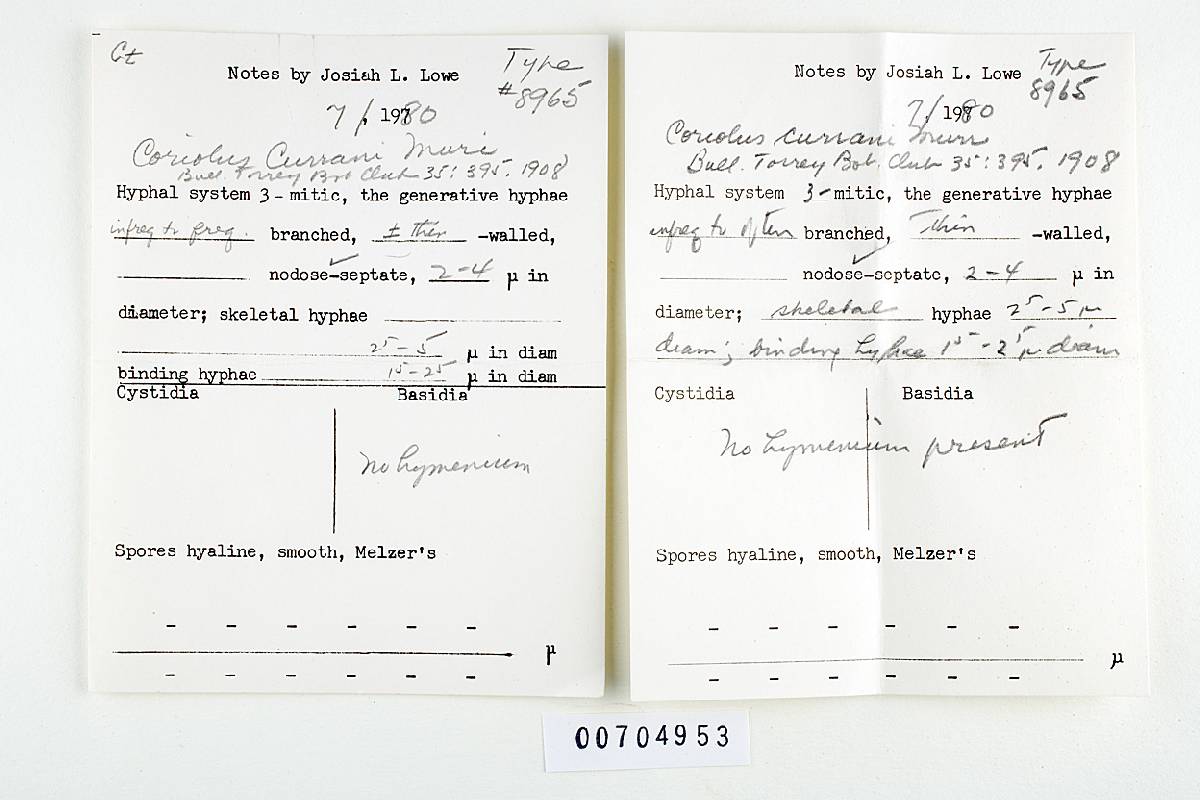 Ct
Notes by Josiah L. Lowe
Type
#8965
7/, 1980
Coriolus Currani Murr
Bull. Torrey Bot Club 35: 395. 1908
Hyphal system 3-mitic, the generative hyphae
infreq to freq. branched, ± thin -walled,
✓
nodose-septate, 2-4 µ in
diameter; skeletal hyphae
2⁵-5 µ in diam
binding hyphae 1⁵-2⁵ µ in diam
Cystidia Basidia
No hymenium
Spores hyaline, smooth, Melzer's
- - - - - -
µ
- - - - - -
Notes by Josiah L. Lowe
Type
8965
7/, 1980
Coriolus currani Murr
Bull. Torrey Bot. Club 35: 395. 1908
Hyphal system 3-mitic, the generative hyphae
infreq to often branched, Thin -walled,
✓
nodose-septate, 2-4 µ in
diameter; skeletal hyphae 2⁵-5 µ
diam; binding hyphae 1⁵-2⁵ µ diam
Cystidia Basidia
No hymenium present
Spores hyaline, smooth, Melzer's
- - - - - -
µ
- - - - - -
00704953